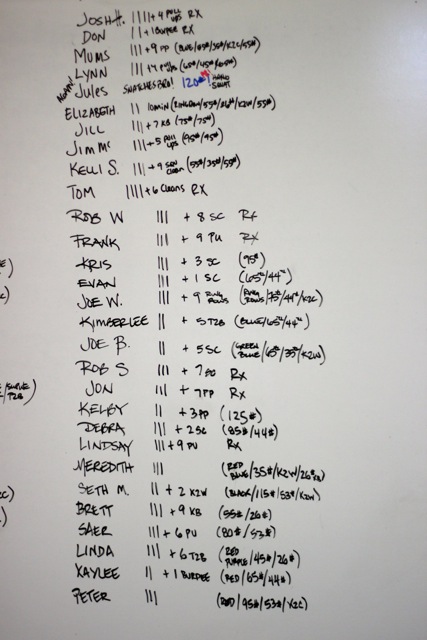 JOSH H. |||| + 9 PULL UPS RX
DON || + 1 BURPEE RX
MUMS ||| + 9 PP (BLUE/65#/35#/K2C/55#)
LYNN ||| + 4 PULL UPS (65#/45#/65#)
AGAIN! JULES SNATCHES BRO! 120# HANG SQUAT
ELIZABETH || 10MIN (RING ROW/55#/26#/K2W/55#)
JILL ||| + 7 KB (75#/75#)
JIM MC ||| + 5 PULL UPS (95#/45#)
KELLI S. ||| + 9 CLEAN (55#/35#/55#)
TOM |||| + 6 CLEANS RX
ROB W ||| + 8 SC RX
FRANK ||| + 9 PU RX
KRIS ||| + 3 SC (95#)
EVAN ||| + 1 SC (65#/44#)
JOE W. ||| + 9 RING ROWS (RING ROWS/75#/44#/K2C)
KIMBERLEE || + 5 T2B (BLUE/65#/44#)
JOE B. || + 5 SC (GREEN BLUE/65#/35#/K2W)
ROB S ||| + 7 RX
JON ||| + 7 PP RX
KELBY || + 3 PP (125#)
DEBRA ||| + 2 SC (85#/44#)
LINDSAY ||| + 9 PU RX
MEREDITH ||| (RED BLUE/35#/K2W/26# KB)
SETH M. || + 2 K2W (BLACK/115#/53#/K2W)
BRETT ||| + 9 KB (55#/26#)
SAER ||| + 6 PU (80#/53#)
LINDA ||| + 6 T2B (RED PURPLE/45#/26#)
KAYLEE || + 1 BURPEE (RED/65#/44#)
PETER ||| (RED/95#/53#/K2C)